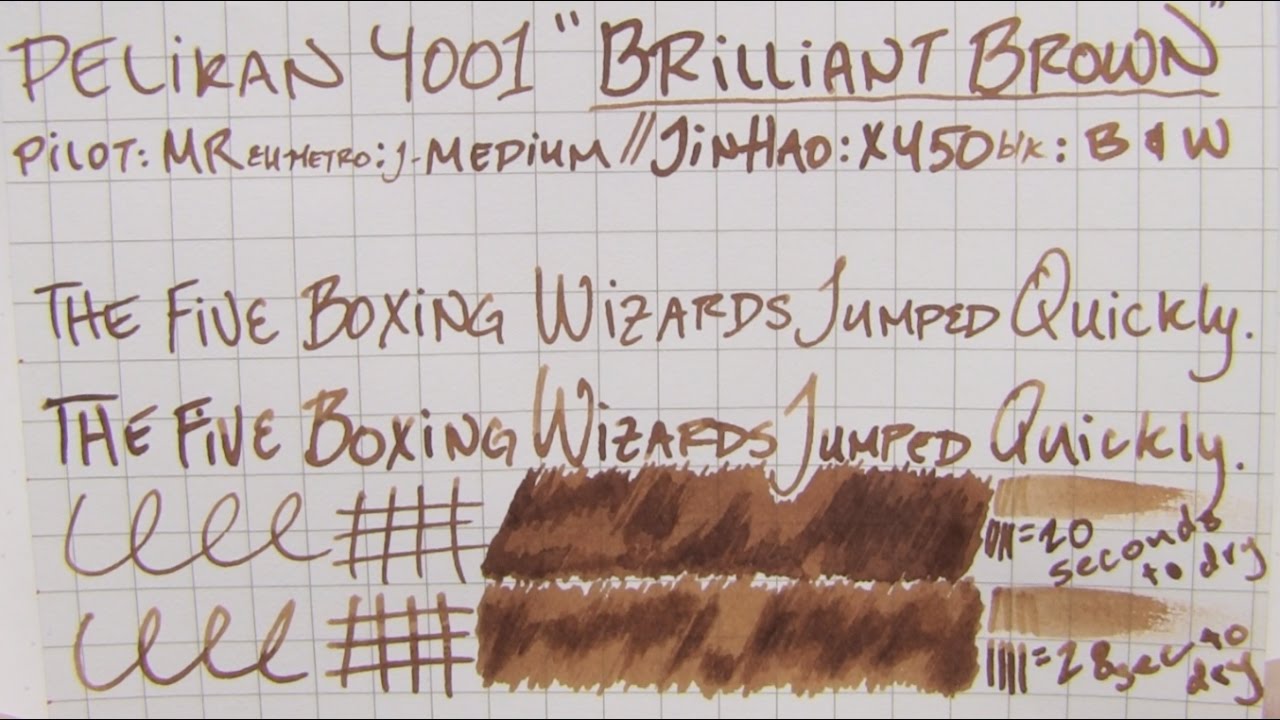 PELIKAN 4001 "BRILLIANT BROWN"
PILOT: MR EU METRO: J- MEDIUM // JINHAO: X450 blk: B & W
THE FIVE BOXING WIZARDS JUMPED QUICKLY.
THE FIVE BOXING WIZARDS JUMPED QUICKLY.
= 20 seconds to dry
= 28 sec to dry